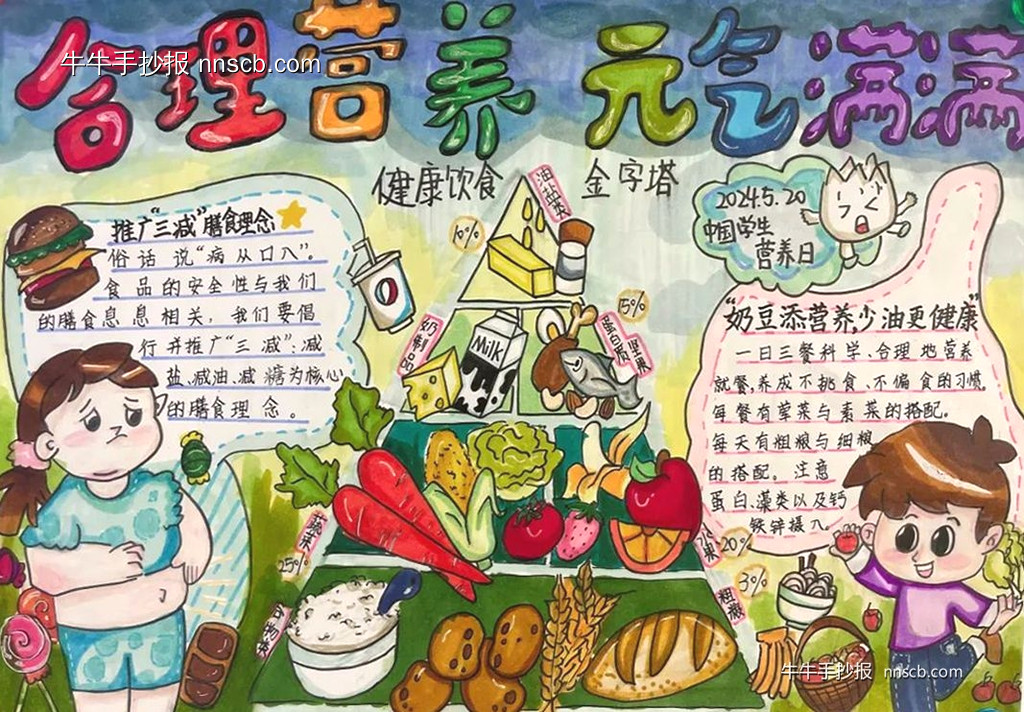 合理营养 元气满满
牛牛手抄报 nnscb.com
健康饮食 金字塔
油盐类
2024.5.20
中国学生
营养日
6%
15%
推广“三减”膳食理念
俗话说“病从口入”。
食品的安全性与我们
的膳食息息相关，我们要倡
行并推广“三减”：减
盐、减油、减糖为核心
的膳食理念。
奶制品
Milk
蛋白质
坚果
“奶豆添营养，少油更健康”
一日三餐科学、合理地营养
就餐，养成不挑食、不偏食的习惯。
每餐有荤菜与素菜的搭配。
每天有粗粮与细粮
的搭配。注意
蛋白、藻类以及钙
铁锌摄入。
蔬菜
25%
水果
20%
谷物类
粗粮
牛牛手抄报 nnscb.com